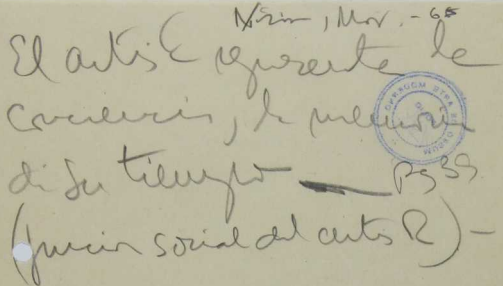 Mor. - 65
El artista representa la
conciencia, la memoria
de su tiempo — Pg 39
(funcion social del artes R) -